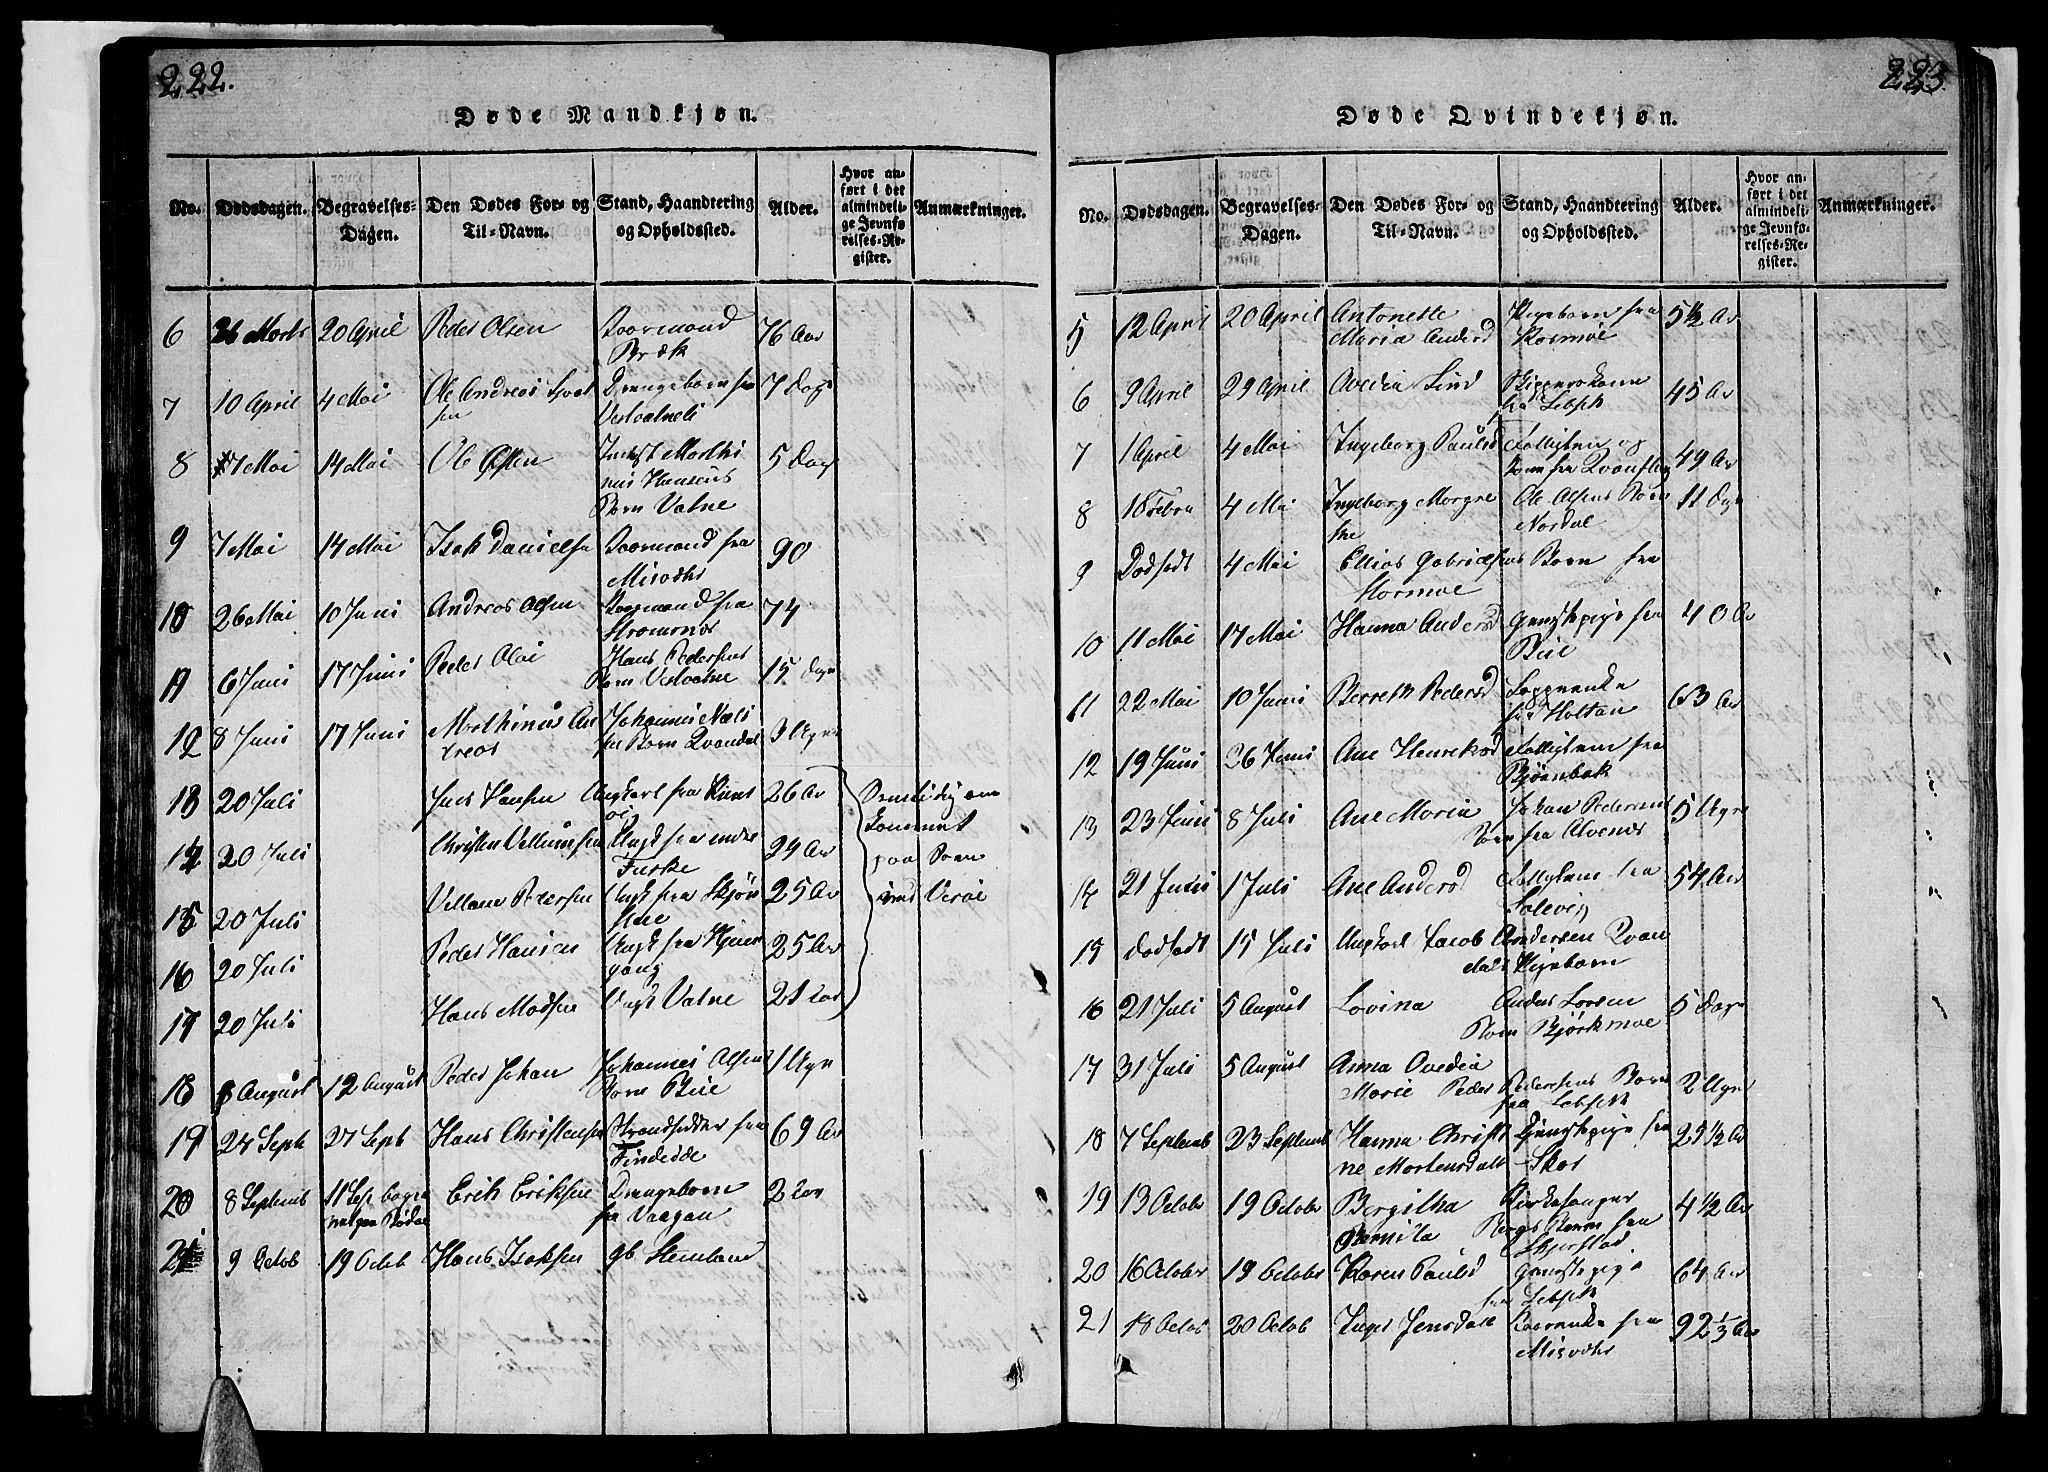 222.
Døde Mandkjøn.
No. Dødsdagen. Begravelses-Dagen. Den Dødes For- og Til-Navn. Stand, Haandtering og Opholdssted. Alder. Hvor anført i det almindelige Jevnførelses-Register. Anmærkninger.
6 26 Marts 20 April Peder Olsen Koormand Bræk 76 Aar
7 10 April 4 Mai Ole Andreas Drengebarn fra Vestvatneli 7 Dage
8 7 Mai 14 Mai Ole Marthi
nus Hansens
Barn Vatne 5 Dag
9 7 Mai 14 Mai Isak Danielsen Koormand fra Misvær 90
10 26 Mai 10 Juni Andreas Olsen Koormand fra Strømsnes 74
11 6 Juni 17 Juni Peder Olai Hans Pedersens Barn Vestvatne 15 Dage
12 8 Juni 17 Juni Marthinus An
dreas Johannes Næls
sen Barn Qvandal 3 Uger
13 20 Juli Jens Hansen Ungkarl fra 26 Aar
14 20 Juli Christen Vellumsen Ungk fra indre Fuske 29 Aar
15 20 Juli Vellum Pedersen Ungk fra Skjøn
stue 25 Aar
16 20 Juli Peder Hansen Ungk fra 25 Aar
17 20 Juli Hans Madsen Ungk Vatne 21 Aar
Samtidig om
kommet
paa Søen
ved Verøe
18 8 August 12 August Peder Johan Johannes Olsens Barn Bue 1 Uge
19 24 Septb 27 Septb Hans Christensen Strandsidder fra Findeide 69 Aar
20 8 Septemb 11 Sep begra
vet paa Bodøe Erik Eriksen Drengebarn fra Vaagan 2 Aar
21 9 Octob 19 Octob Hans Isaksen gb Stemland
223.
Døde Qvindekjøn.
No. Dødsdagen. Begravelses-Dagen. Den Dødes For- og Til-Navn. Stand, Haandtering og Opholdssted. Alder. Hvor anført i det almindelige Jevnførelses-Register. Anmærkninger.
5 12 April 20 April Antonette
Maria Andersd Pigebarn fra Kosmoe 5 1/2 Aar
6 9 April 29 April Ovedia Lind Byggerskone fra Lebsk 45 Aar
7 1 April 4 Mai Ingeborg Paulsd Fattiglem og
Kone fra Qvanflog 49 Aar
8 18 Febru 4 Mai Ingeborg Margre
the Ole Olsens Barn
Nordal 11 Dage
9 Dødfødt 4 Mai Elias Gabrielsens Barn fra
Stormoe
10 11 Mai 17 Mai Hanna Andersd Tjenestepige fra
Bue 40 Aar
11 22 Mai 10 Juni Berreth Pedersd Lægdsenke
fra Holtan 63 Aar
12 19 Juni 26 Juni Ane Henriksd Fattiglem fra
Bjørnbak
13 23 Juni 8 Juli Ane Maria Johan Pedersens
Barn fra Alvenes 5 Uger
14 21 Juni 1 Juli Ane Andersd Fattiglem fra
Solevig 54 Aar
15 Dødfødt 15 Juli Ungkarl Jacob Andersen Qvan
dals Pigebarn
16 21 Juli 5 August Lovina Anders Larsen
Barn Bjørkmoe 5 Dage
17 31 Juli 5 August Anna Ovedia
Marie Peder Pedersens Barn
fra Lebsk 2 Uger
18 7 Septemb 23 Septemb Hanna Christi
ne Mortensdatt Tjenestepige fra
Skar 29 1/2 Aar
19 13 Octobr 19 Octobr Bergitha
Pernila Kirkesanger
Bergs Barn fra
Skjerstad 4 1/2 Aar
20 16 Octobr 19 Octobr Karen Paulsd Tjenestepige
fra Lebsk 64 Aar
21 18 Octob 20 Octob Inger Jensdatt Kaarenke fra
Misvær 92 1/3 Aar